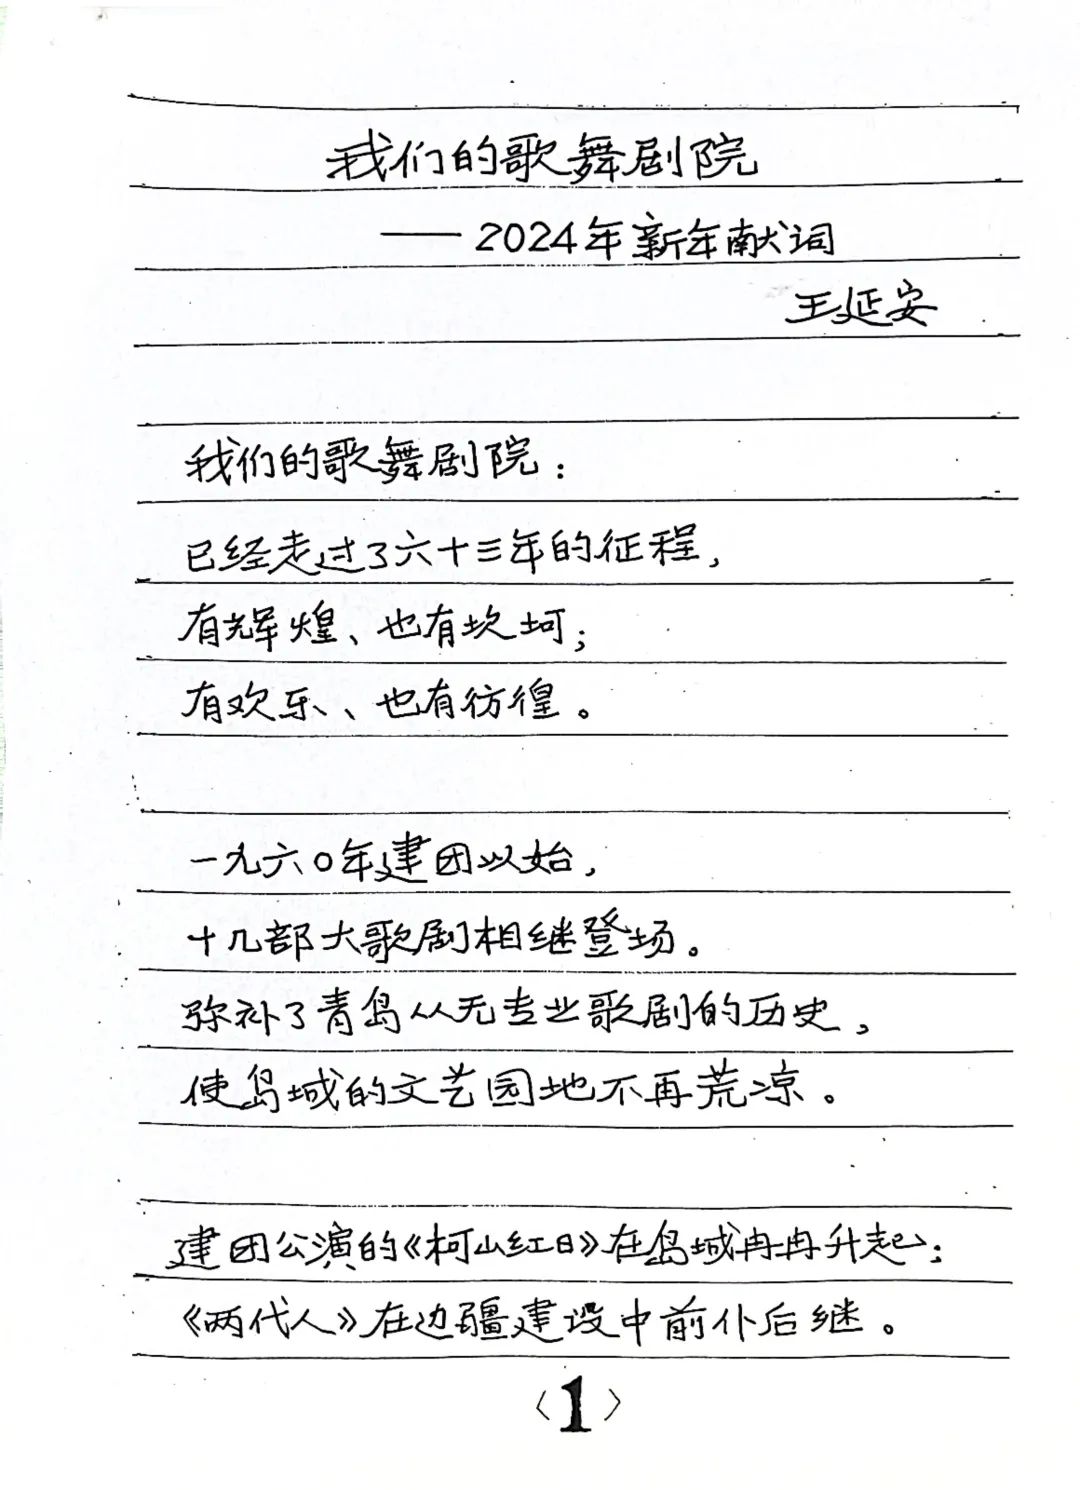 我们的歌舞剧院
——2024年新年献词
王延安
我们的歌舞剧院：
已经走过了六十三年的征程，
有辉煌、也有坎坷；
有欢乐、也有彷徨。
一九六〇年建团以始，
十几部大歌剧相继登场。
弥补了青岛从无专业歌剧的历史，
使岛城的文艺园地不再荒凉。
建团公演的《柯山红日》在岛城冉冉升起；
《两代人》在边疆建设中前仆后继。
〈1〉